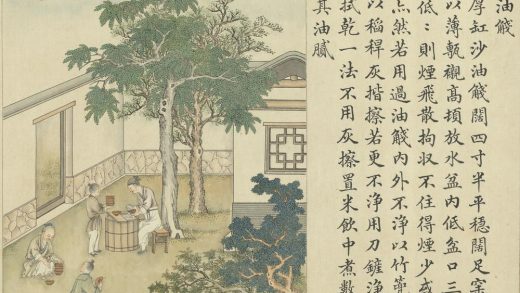 油醆
厚缸沙油醆闊四寸半平穩闊足窯
以薄甎襯高頓放水盆內低盆口三
低〻則煙飛散拘收不住得煙少
然若用過油醆內外不淨以竹箆
以稻稈灰揩擦若更不淨用刀鏟淨
拭乾一法不用灰擦置米飲中煮數
其油膩